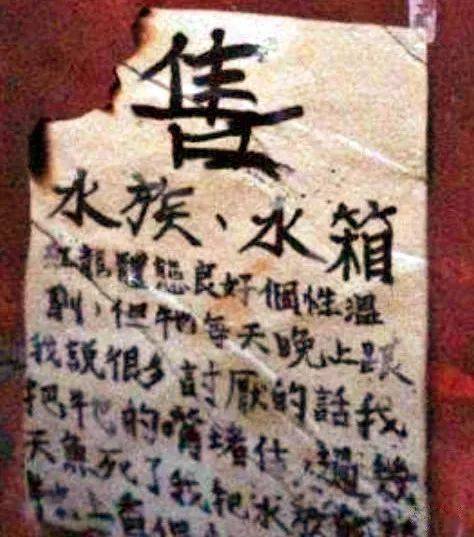 售
水族、水箱
紅龍體態良好個性溫
馴，但牠每天晚上跟
我說很多討厭的話我
把牠的嘴堵住，過幾
天魚死了我把水族
上直